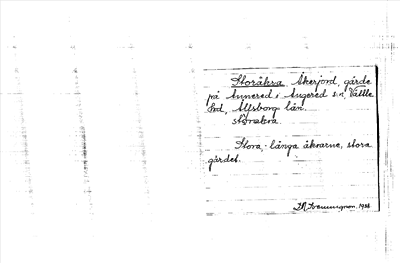 Storåkra Åkerjord, gärde
på Annered i Angered s:n, Vättle
hd, Älfsborgs län.
storakra.
Stora, långa åkrarne, stora
gärdet.
1924